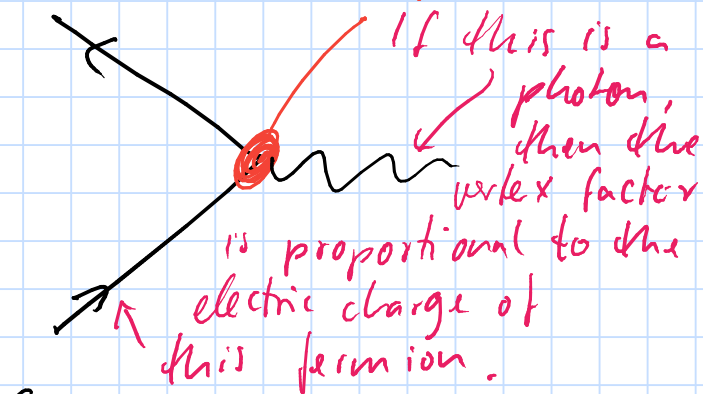 If this is a
photon,
then the
vertex factor
is proportional to the
electric charge of
this fermion.